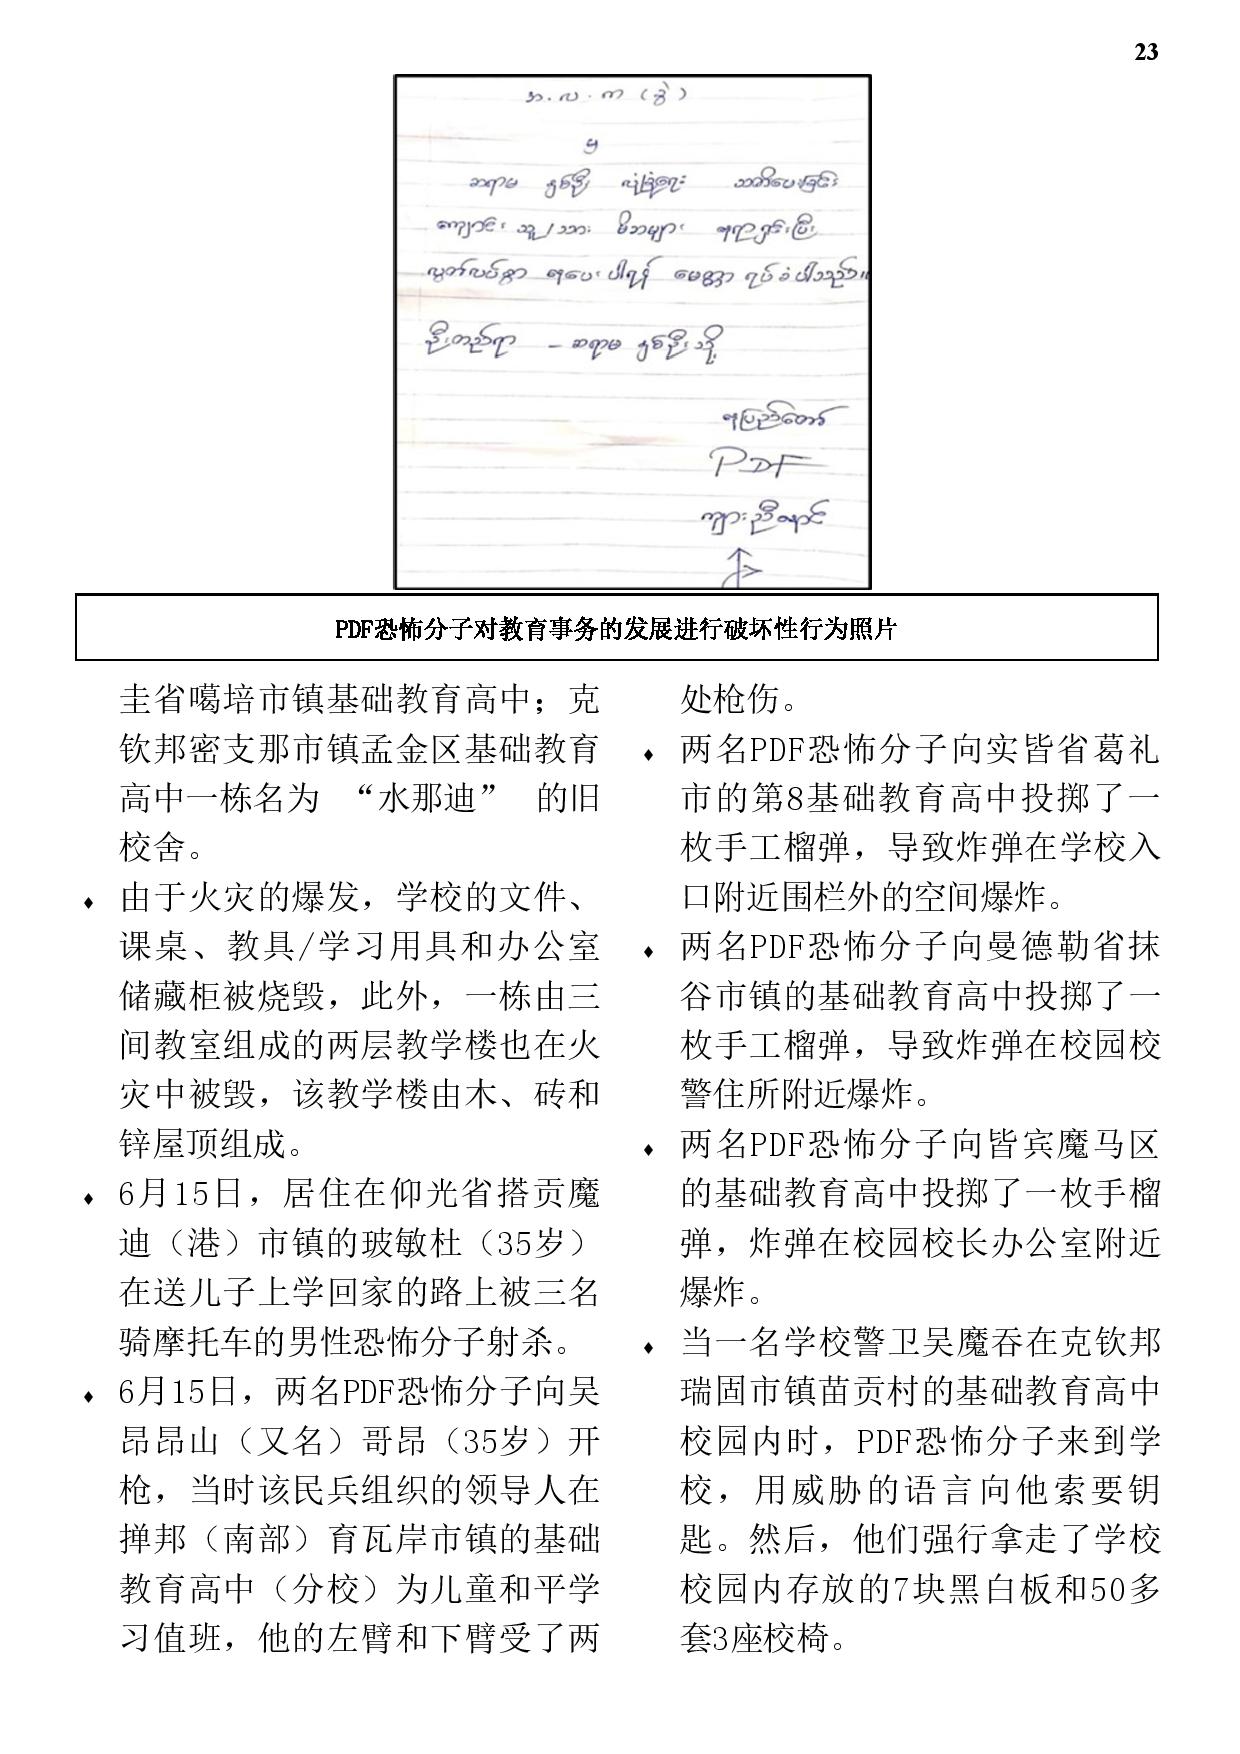 23
အ.လ.က (ခွဲ)
မှ
ဆရာမ နှစ်ဦး လုံခြုံရေး သတိပေးခြင်း
ကျောင်း သူ/သား မိဘများ နေရာရှင်းပြီး
လွတ်လပ်စွာ နေပေးပါရန် မေတ္တာ ရပ်ခံပါသည်။
ဦးတည်ရာ – ဆရာမ နှစ်ဦးသို့
နေပြည်တော်
PDF
ကျားညီနောင်
PDF恐怖分子对教育事务的发展进行破坏性行为照片
圭省噶培市镇基础教育高中；克
钦邦密支那市镇孟金区基础教育
高中一栋名为 “水那迪” 的旧
校舍。
♦ 由于火灾的爆发，学校的文件、
课桌、教具/学习用具和办公室
储藏柜被烧毁，此外，一栋由三
间教室组成的两层教学楼也在火
灾中被毁，该教学楼由木、砖和
锌屋顶组成。
♦ 6月15日，居住在仰光省搭贡魔
迪（港）市镇的玻敏杜（35岁）
在送儿子上学回家的路上被三名
骑摩托车的男性恐怖分子射杀。
♦ 6月15日，两名PDF恐怖分子向吴
昂昂山（又名）哥昂（35岁）开
枪，当时该民兵组织的领导人在
掸邦（南部）育瓦岸市镇的基础
教育高中（分校）为儿童和平学
习值班，他的左臂和下臂受了两
处枪伤。
♦ 两名PDF恐怖分子向实皆省葛礼
市的第8基础教育高中投掷了一
枚手工榴弹，导致炸弹在学校入
口附近围栏外的空间爆炸。
♦ 两名PDF恐怖分子向曼德勒省抹
谷市镇的基础教育高中投掷了一
枚手工榴弹，导致炸弹在校园校
警住所附近爆炸。
♦ 两名PDF恐怖分子向皆宾魔马区
的基础教育高中投掷了一枚手榴
弹，炸弹在校园校长办公室附近
爆炸。
♦ 当一名学校警卫吴魔吞在克钦邦
瑞固市镇苗贡村的基础教育高中
校园内时，PDF恐怖分子来到学
校，用威胁的语言向他索要钥
匙。然后，他们强行拿走了学校
校园内存放的7块黑白板和50多
套3座校椅。